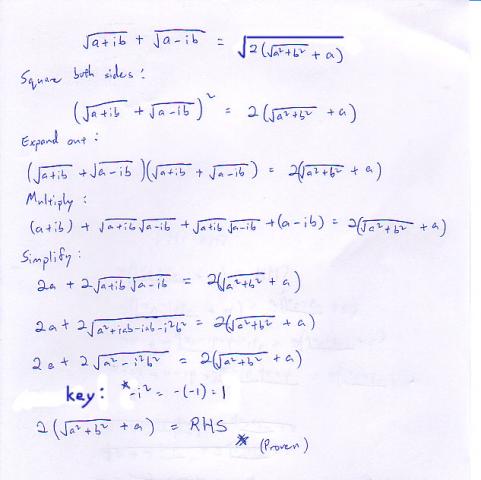 √(a+ib) + √(a-ib) = √(2(√(a²+b²) + a))
Square both sides:
(√(a+ib) + √(a-ib))² = 2(√(a²+b²) + a)
Expand out:
(√(a+ib) + √(a-ib))(√(a+ib) + √(a-ib)) = 2(√(a²+b²) + a)
Multiply:
(a+ib) + √(a+ib)√(a-ib) + √(a+ib)√(a-ib) + (a-ib) = 2(√(a²+b²) + a)
Simplify:
2a + 2√(a+ib)√(a-ib) = 2(√(a²+b²) + a)
2a + 2√(a²+iab-iab-i²b²) = 2(√(a²+b²) + a)
2a + 2√(a²-i²b²) = 2(√(a²+b²) + a)
key: *-i² = -(-1) = 1
2(√(a²+b²) + a) = RHS
* (Proven)